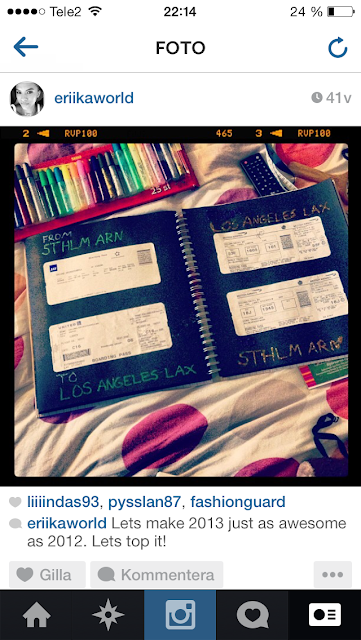 Tele2 22:14 24 %
FOTO
eriikaworld 41v
2 RVP100 465 3 RVP100
25 st
FROM
STHLM ARN
LOS ANGELES LAX
UNITED
BOARDING PASS
TO
LOS ANGELES LAX
STHLM ARN
liiiindas93, pysslan87, fashionguard
eriikaworld Lets make 2013 just as awesome
as 2012. Lets top it!
Gilla
Kommentera